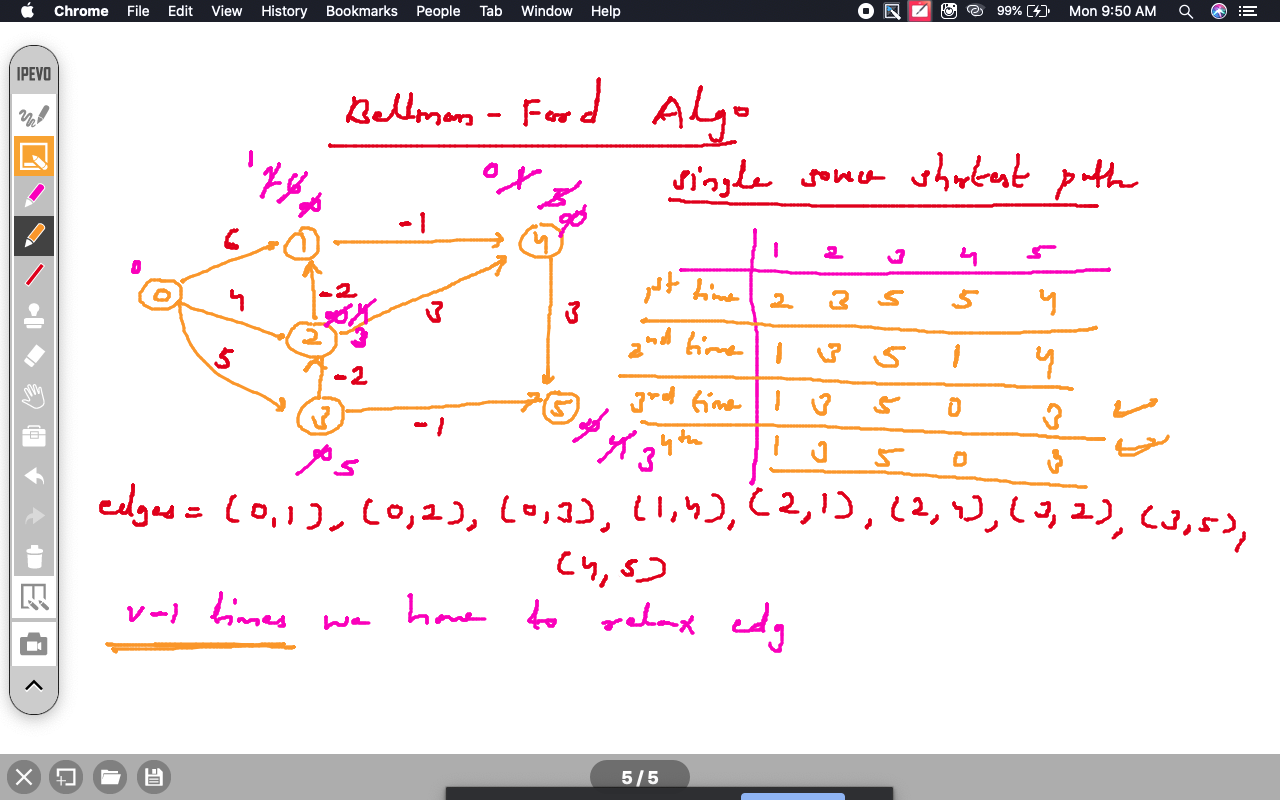 Chrome File Edit View History Bookmarks People Tab Window Help 99% Mon 9:50 AM
IPEVO
Bellman-Ford Algo
single source shortest path
0
1 2 6 ∞
0 1 5 ∞
0
1
2
3
4
5
6
4
5
-1
-2
3
-2
-1
3
∞ 4 3
∞ 5
∞ 4 3
1 2 3 4 5
1st time 2 3 5 5 4
2nd time 1 3 5 1 4
3rd time 1 3 5 0 3
4th 1 3 5 0 3
edges = (0,1), (0,2), (0,3), (1,4), (2,1), (2,4), (3,2), (3,5),
(4,5)
v-1 times we have to relax edg
5/5